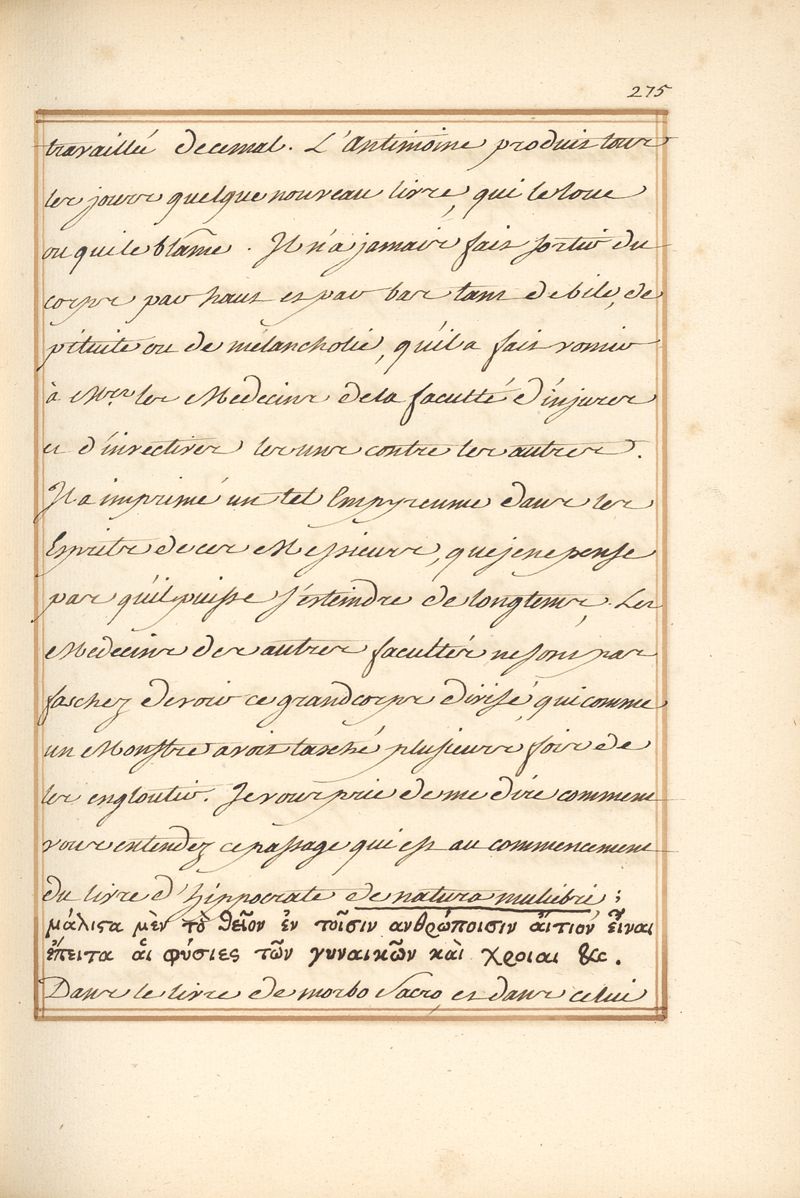 275
travaillé de ce mal. L'Antimoine produit tous
les jours quelque nouveau livre, qui le loue
ou qui le blâme. Il n'a jamais fait sortir du
corps par haut et par bas tant de bile, de
pituite ou de mélancholie, qu'il a fait vomir
à Mrs les Medecins de la faculté d'injures
et d'invectives les uns contre les autres.
Il a imprimé un tel Empyreume dans les
Esprits de ces Messieurs, que je ne pense
pas qu'il puisse s'esteindre de longtems. Les
Medecins des autres facultés ne sont pas
faschez de voir ce grand corps divisé, qui comme
un Monstre avoit tasché plusieurs fois de
les engloutir. Je vous prie de me dire comment
vous entendez ce passage qui est au commencement
du livre d'Hippocrate de natura muliebri;
μάλιϛα μὲν τὸ θεῖον ἐν τοῖσιν ανθρώποισιν αἴτιον εἶναι
ἔπειτα αἱ φύσιες τῶν γυναικῶν καὶ χροιαι &c.
Dans le livre de morbo Sacro, et dans celui